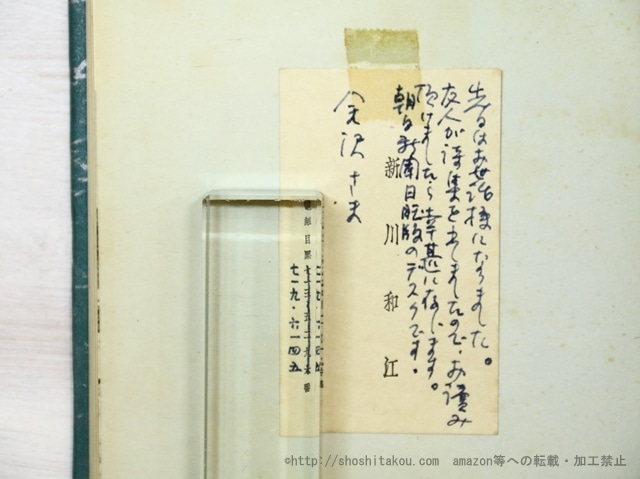 先日はお世話様になりました。
友人が詩集を出しましたので、お読み
頂けましたら幸甚に存じます。
朝日新聞日曜版のデスクです。
新川和江
金沢さま
七一九・六一四五
©http://shoshitakou.com amazon等への転載・加工禁止